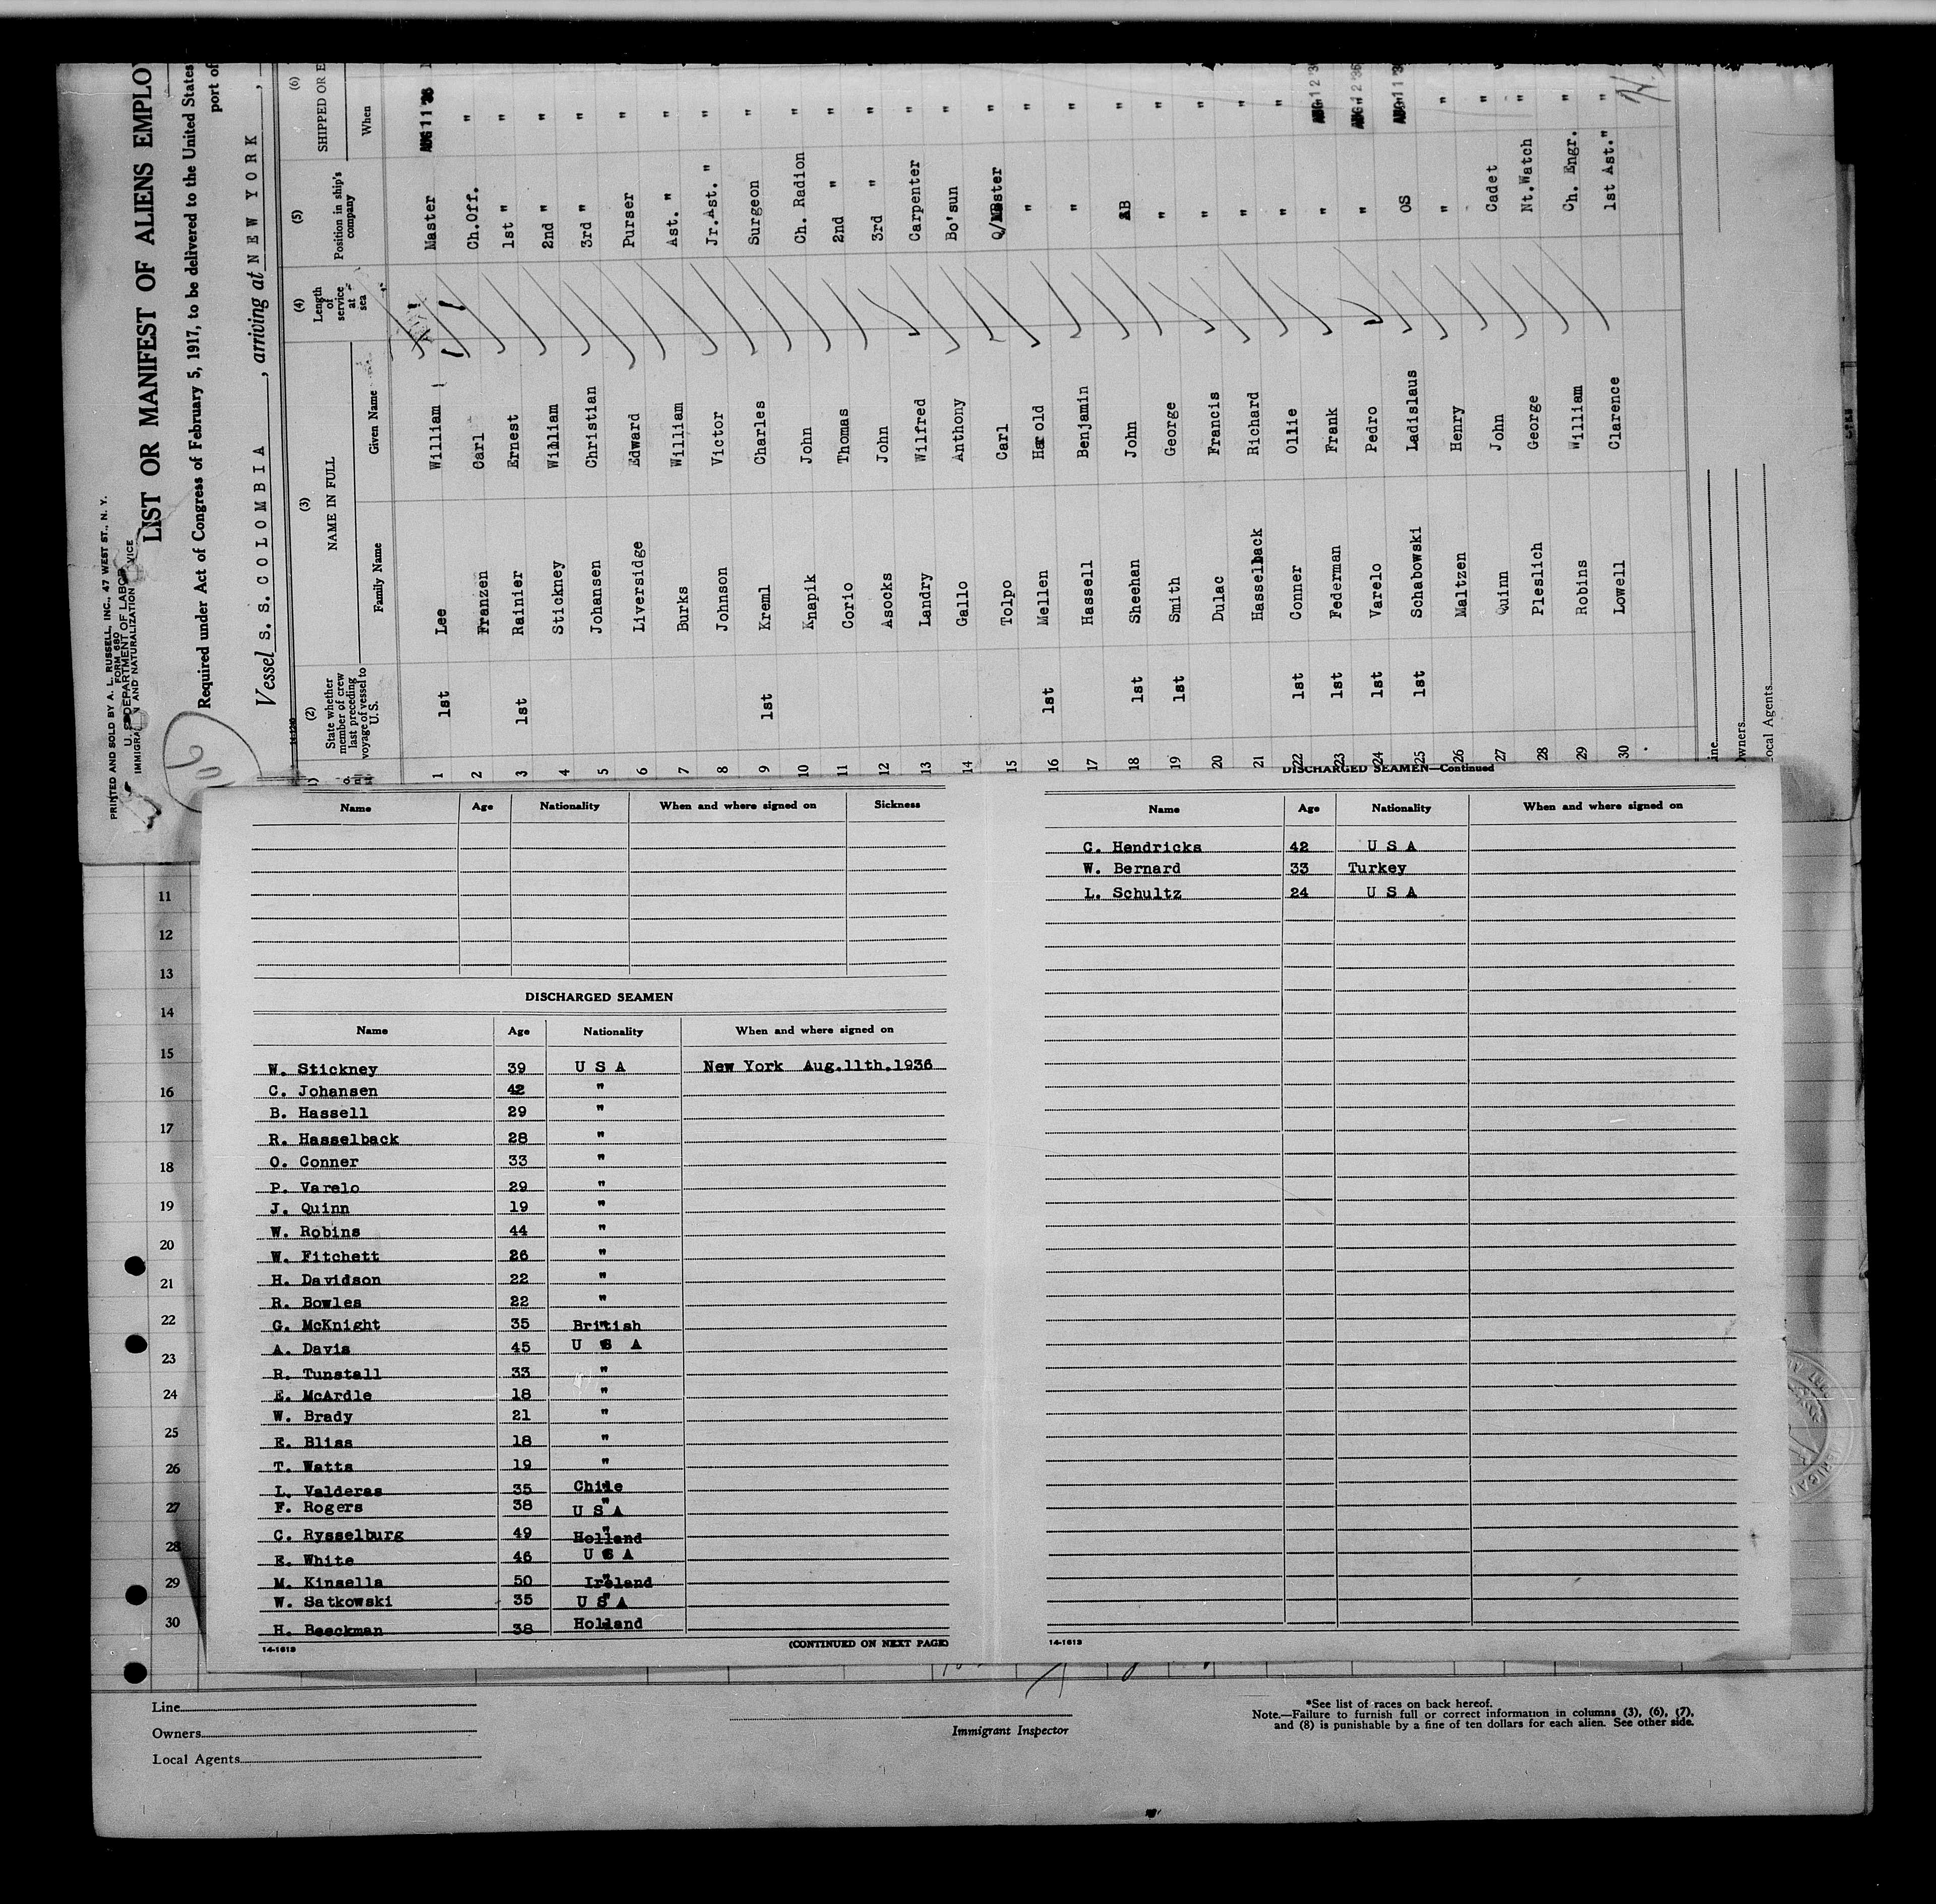 PRINTED AND SOLD BY A. L. RUSSELL, INC., 47 WEST ST., N. Y.
FORM 680
U. S. DEPARTMENT OF LABOR
IMMIGRATION AND NATURALIZATION SERVICE
LIST OR MANIFEST OF ALIENS EMPLO
Required under Act of Congress of February 5, 1917, to be delivered to the United States
port of
Vessel S. S. COLOMBIA, arriving at NEW YORK,
(2) (3) (4) (5) (6)
State whether member of crew last preceding voyage of vessel to U.S. NAME IN FULL Length of service at sea Position in ship's company SHIPPED OR E
Family Name Given Name When
1 1st Lee William Master AUG 11 '36
2 Franzen Carl Ch.Off. "
3 1st Rainier Ernest 1st " "
4 Stickney William 2nd " "
5 Johansen Christian 3rd " "
6 Liversidge Edward Purser "
7 Burks William Ast. " "
8 Johnson Victor Jr.Ast. " "
9 1st Kreml Charles Surgeon "
10 Knapik John Ch. Radion "
11 Corio Thomas 2nd " "
12 Asocks John 3rd " "
13 Landry Wilfred Carpenter "
14 Gallo Anthony Bo'sun "
15 Tolpo Carl Q/Master "
16 1st Mellen Harold " "
17 Hassell Benjamin " "
18 1st Sheehan John AB "
19 1st Smith George " "
20 Dulac Francis " "
21 Hasselback Richard " "
22 1st Conner Ollie " "
23 1st Federman Frank " AUG 12 '36
24 1st Varelo Pedro " AUG 12 '36
25 1st Schabowski Ladislaus OS AUG 11 '3
26 Maltzen Henry " "
27 Quinn John Cadet "
28 Pleslich George Nt.Watch "
29 Robins William Ch. Engr. "
30 Lowell Clarence 1st Ast." "
ine
wners
ocal Agents
Name Age Nationality When and where signed on Sickness
DISCHARGED SEAMEN
Name Age Nationality When and where signed on
W. Stickney 39 U S A New York Aug.11th.1936
C. Johansen 42 "
B. Hassell 29 "
R. Hasselback 28 "
O. Conner 33 "
P. Varelo 29 "
J. Quinn 19 "
W. Robins 44 "
W. Fitchett 26 "
H. Davidson 22 "
R. Bowles 22 "
G. McKnight 35 British
A. Davis 45 U S A
R. Tunstall 33 "
E. McArdle 18 "
W. Brady 21 "
E. Bliss 18 "
T. Watts 19 "
L. Valderas 35 Chile
F. Rogers 38 U S A
C. Rysselburg 49 Holland
E. White 46 U S A
M. Kinsella 50 Ireland
W. Satkowski 35 U S A
H. Beeckman 38 Holland
14-1613 (CONTINUED ON NEXT PAGE)
DISCHARGED SEAMEN—Continued
Name Age Nationality When and where signed on
C. Hendricks 42 U S A
W. Bernard 33 Turkey
L. Schultz 24 U S A
14-1613
11
12
13
14
15
16
17
18
19
20
21
22
23
24
25
26
27
28
29
30
Line
Owners
Local Agents
Immigrant Inspector
*See list of races on back hereof.
Note.—Failure to furnish full or correct information in columns (3), (6), (7),
and (8) is punishable by a fine of ten dollars for each alien. See other side.